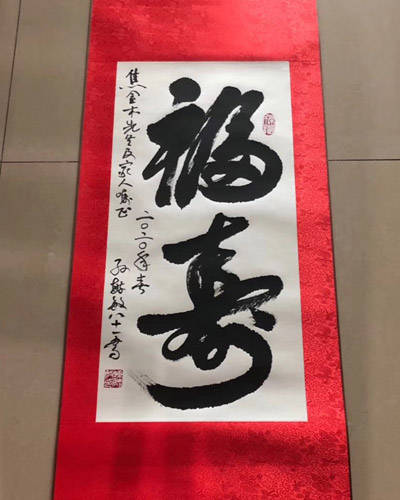 福寿
焦金木先生及家人雅正
二〇二〇年春
孙毓敏八十一